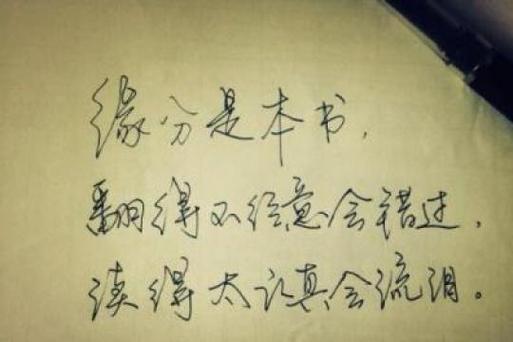 缘分是本书，
翻得不经意会错过，
读得太认真会流泪。